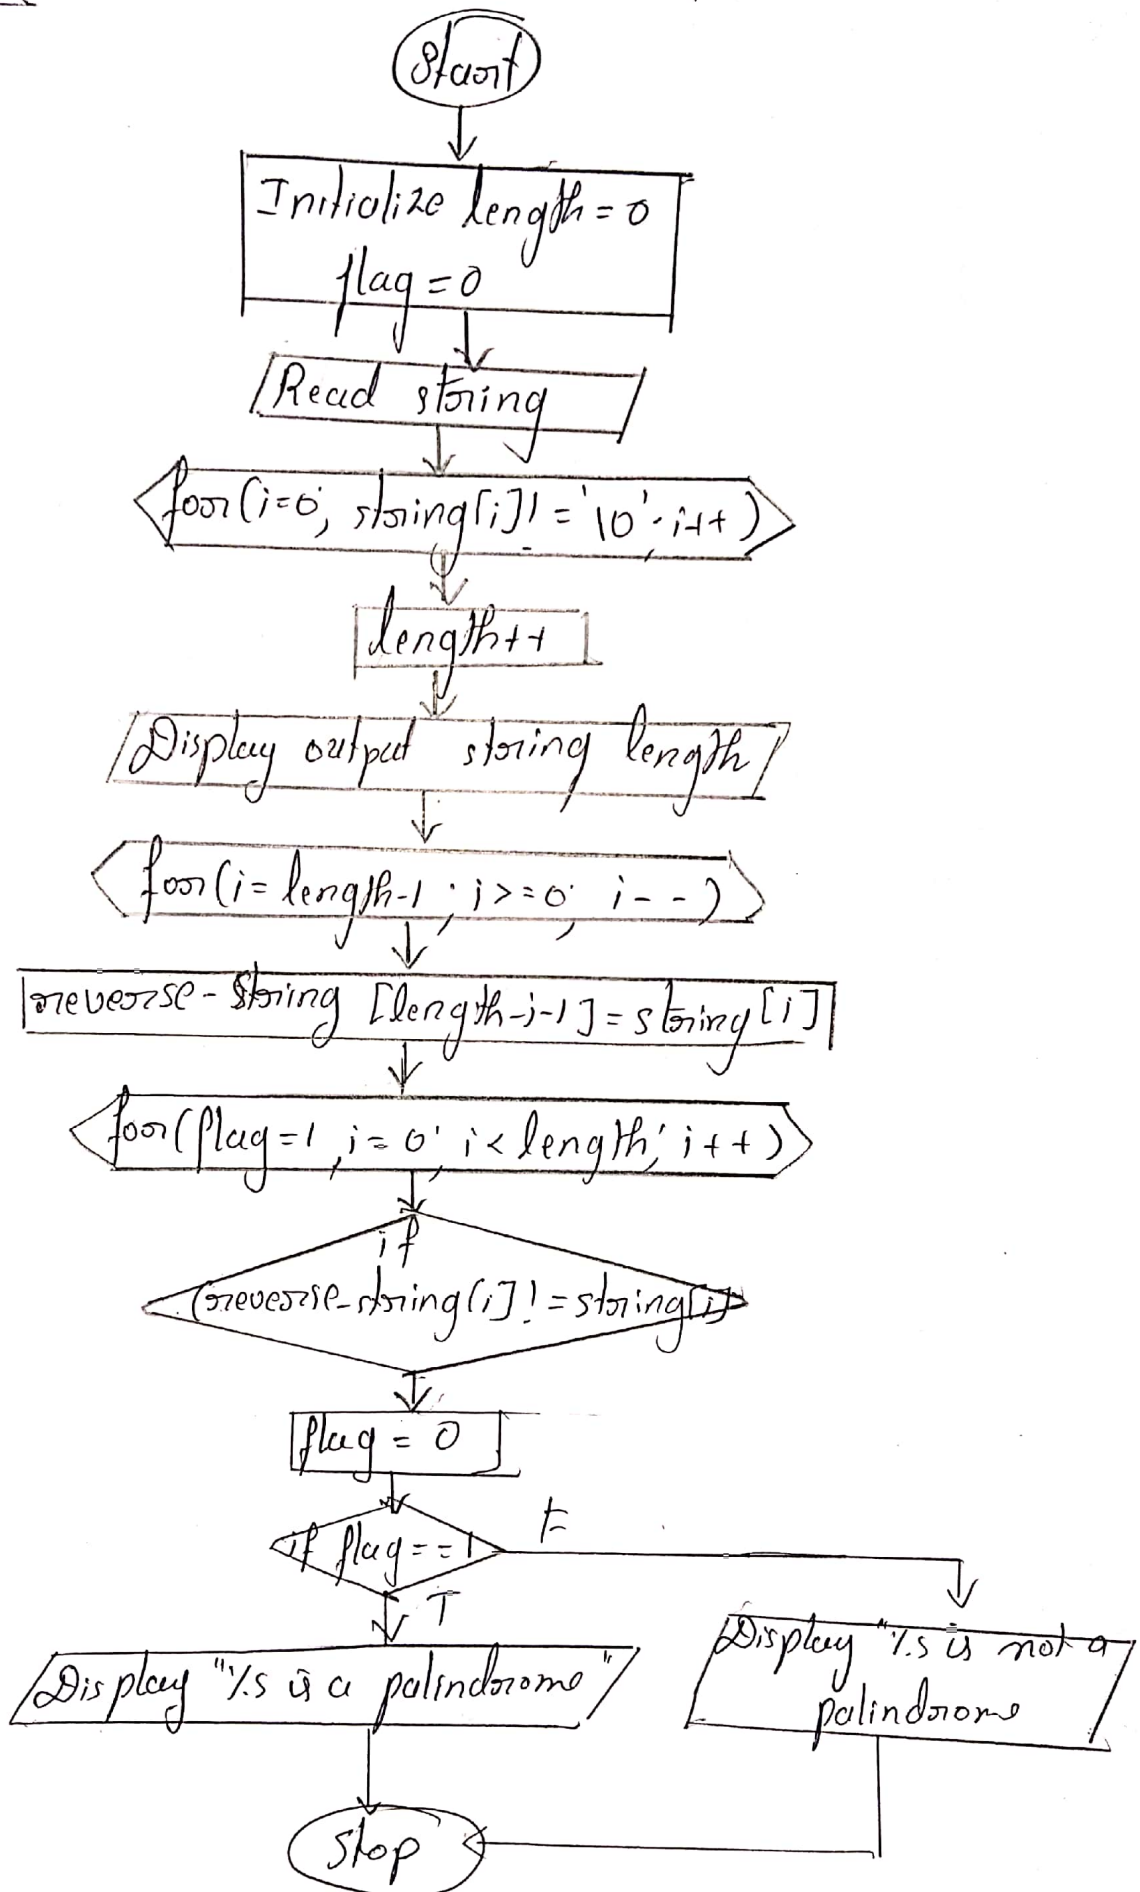 Start
Initialize length=0
flag=0
Read string
for(i=0; string[i]!='\0'; i++)
length++
Display output string length
for(i=length-1; i>=0; i--)
reverse-string [length-i-1]=string[i]
for(flag=1, i=0; i<length; i++)
if
(reverse-string[i]!=string[i])
flag=0
if flag==1
F
T
Display "%s is a palindrome"
Display "%s is not a
palindrome
stop